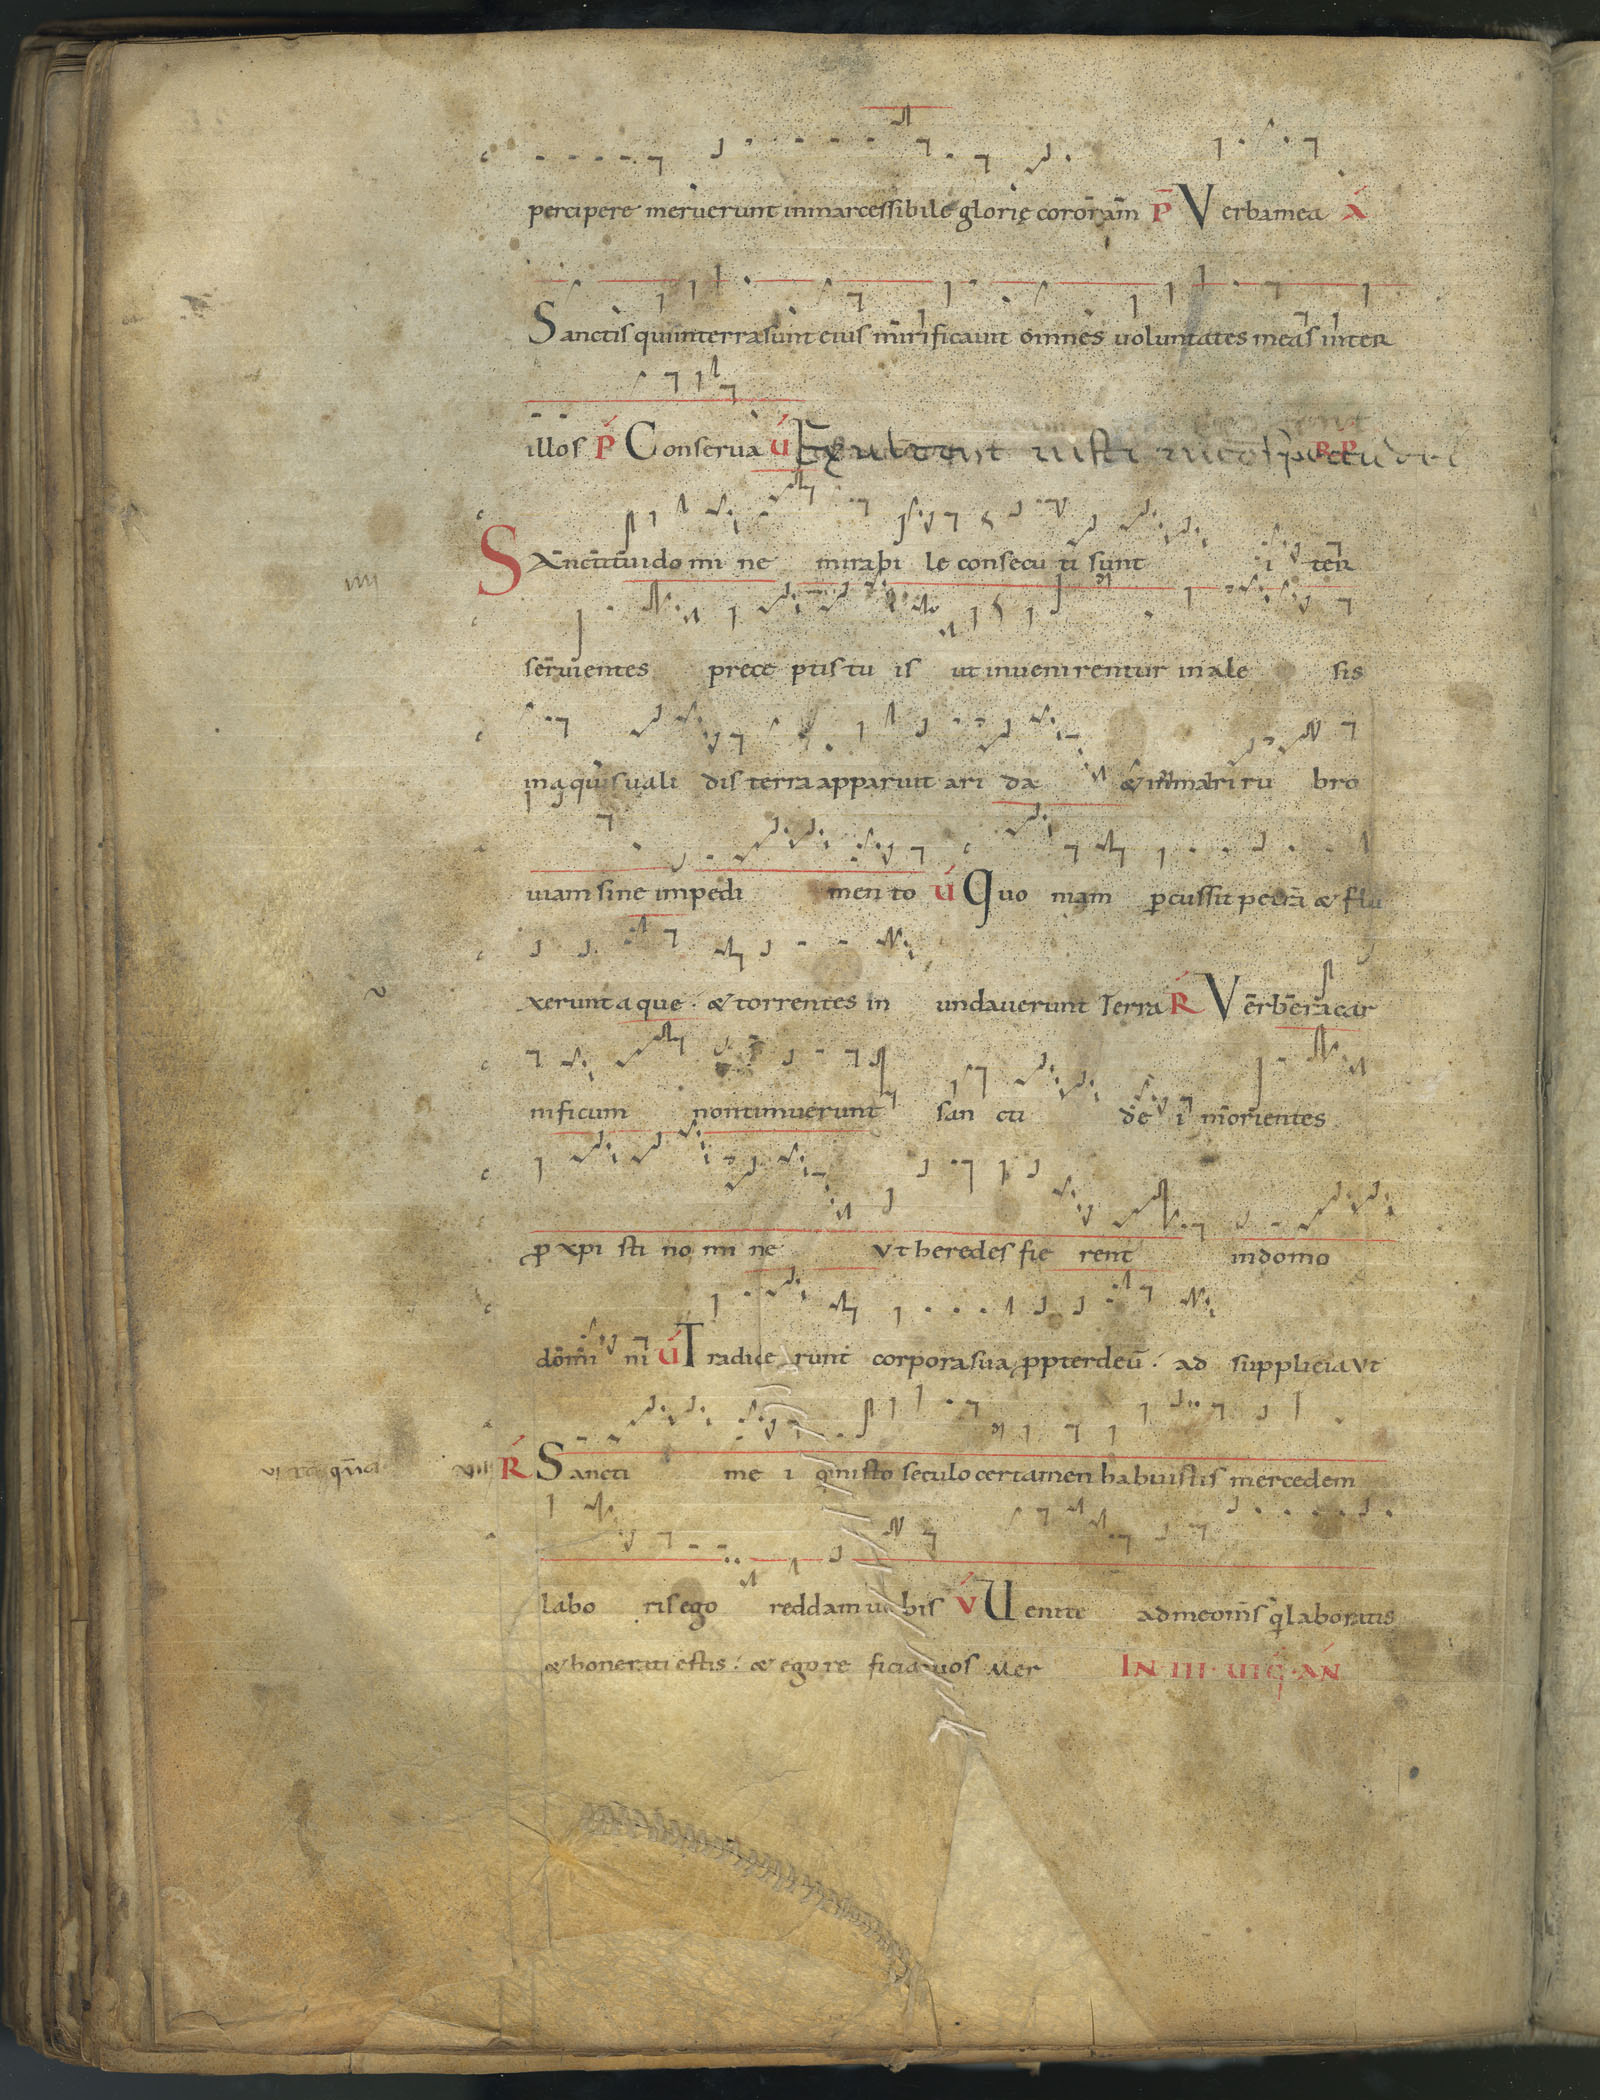 percipere meruerunt inmarcessibile glorię coronam P̄ Verba mea A
Sanctis qui in terra sunt eius mirificavit omnes voluntates meas inter
illos P Conserva V Exultent iusti in conspectu dei RR
Sancti tui domine mirabile consecuti sunt iter
servientes preceptis tuis ut invenirentur inale sis
in aquis validis terra apparuit arida & in mari rubro
viam sine impedimento V Quoniam percussit petrā & flu
xerunt aque. & torrentes inundaverunt Terra R Verbera car
nificum non timuerunt sancti dei morientes
p xpisti nomine Vt heredes fierent in domo
domini V Tradiderunt corpora sua ppter deū. ad supplicia Vt
VIIII R Sancti mei q in isto seculo certamen habuistis mercedem
laboris ego reddam vobis V Venite ad me om̄s q laboratis
& honerati estis. & ego reficiā vos Mer IN III VIG AN